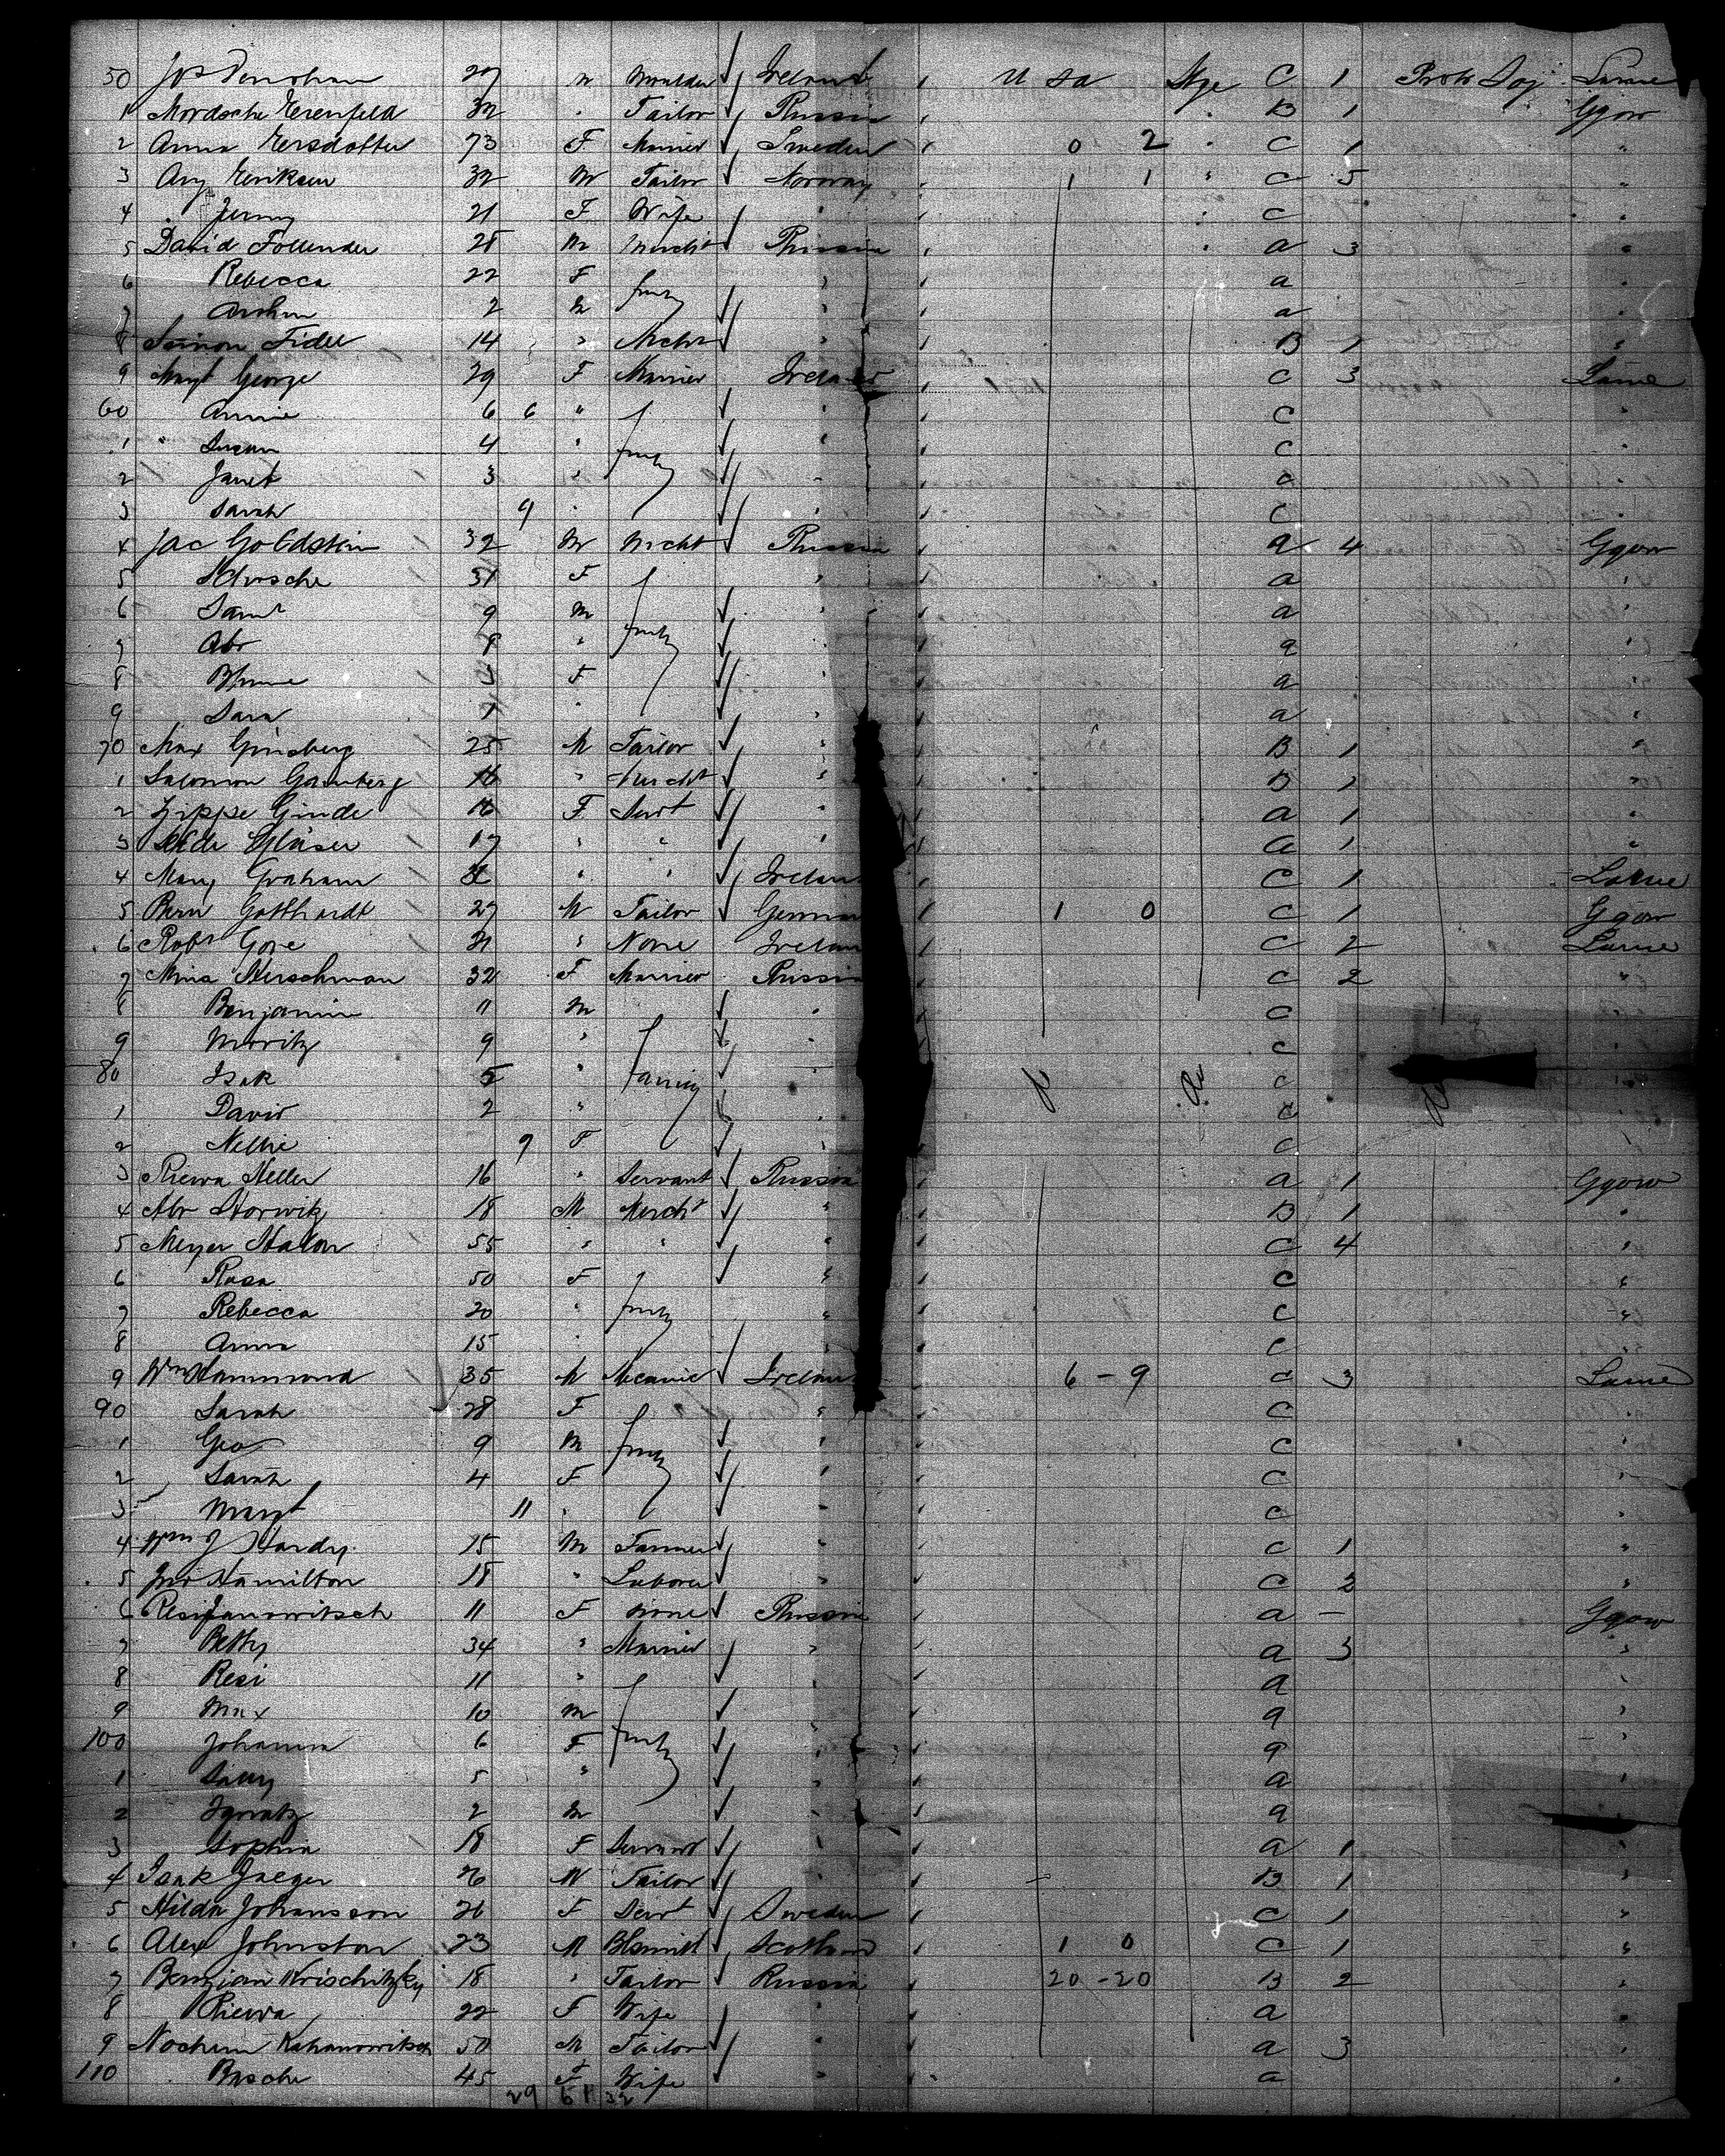 50 Jos Denohan 27 m Moulder Ireland U Sa Stge C 1 Protr Soj Larne
1 Mordsche Erenfeld 32 " Tailor Russia " B 1 Ggow
2 Anna Ersdotter 73 F Married Sweden 0 2 " C 1 "
3 Eriksen 32 M Tailor Norway 1 1 " C 5 "
4 Jenny 21 F Wife " " C "
5 David Follender 28 m Mercht Russia " a 3 "
6 Rebecca 22 F fmly " a "
7 2 m " a "
8 Simon Fidel 14 " Mcht " B 1 "
9 Margt George 29 F Married Ireland C 3 Larne
60 Annie 6 6 " " C "
1 " Susan 4 " fmly " C "
2 Janet 3 " " C "
3 Sarah 9 " " C "
4 Jac Goldstein 32 M Mcht Russia a 4 Ggow
5 31 F " a "
6 Saml 9 m " a "
7 Abr 8 " fmly " a "
8 Blume 3 F " a "
9 Sara 1 " " a "
70 Max Ginsberg 25 M Tailor " B 1 "
1 Salomon 16 " Mercht " B 1 "
2 Zippe Ginde 16 F Servt " a 1 "
3 Glaser 17 " " " a 1 "
4 Mary Graham " " Ireland C 1 Larne
5 Bern Gotthardt 27 M Tailor German 1 0 C 1 Ggow
6 Robt Gore 21 " None Ireland C 2 Larne
7 Mina Herschman 32 F Married Russia C 2 "
8 Benjamin 11 m " C
9 Moritz 9 " " C
80 Isak 5 " family " C
1 David 2 " " C
2 Nellie 9 F " C
3 Riewa Heller 16 " Servant Russia a 1 Ggow
4 Abr Horwitz 18 M Mercht " B 1 "
5 Meyer 55 " " " C 4 "
6 Rosa 50 F " C "
7 Rebecca 20 " fmly " C "
8 Anna 15 " " C "
9 Wm Hammond 35 M Ireland 6 - 9 C 3 Larne
90 Sarah 28 F " C "
1 Geo 9 m fmly " C "
2 Sarah 4 F " C "
3 Margt 11 " " C "
4 Wm J Hardy 15 m Farmer " C 1 "
5 Jno Hamilton 18 " Laborer " C 2 "
6 Resi Janowitsch 11 F None Russia a - Ggow
7 Betty 34 " Married " a 3 "
8 Resi 11 " a "
9 Max 10 m " a "
100 Johanna 6 F fmly " a "
1 Sally 5 " " a "
2 Ignatz 2 m " a "
3 Sophia 18 F Servant " a 1 "
4 Isak Jaeger 26 M Tailor " B 1 "
5 Hilda Johansson 26 F Servt Sweden C 1 "
6 Alex Johnston 23 M Blsmith Scotland 1 0 C 1 "
7 Krischitzky 18 " Tailor Russia 20 - 20 B 2 "
8 Riewa 22 F Wife " a "
9 Nochum Kahanowitsch 50 M Tailor " a 3 "
110 Basche 45 F Wife " a "
29 61 32